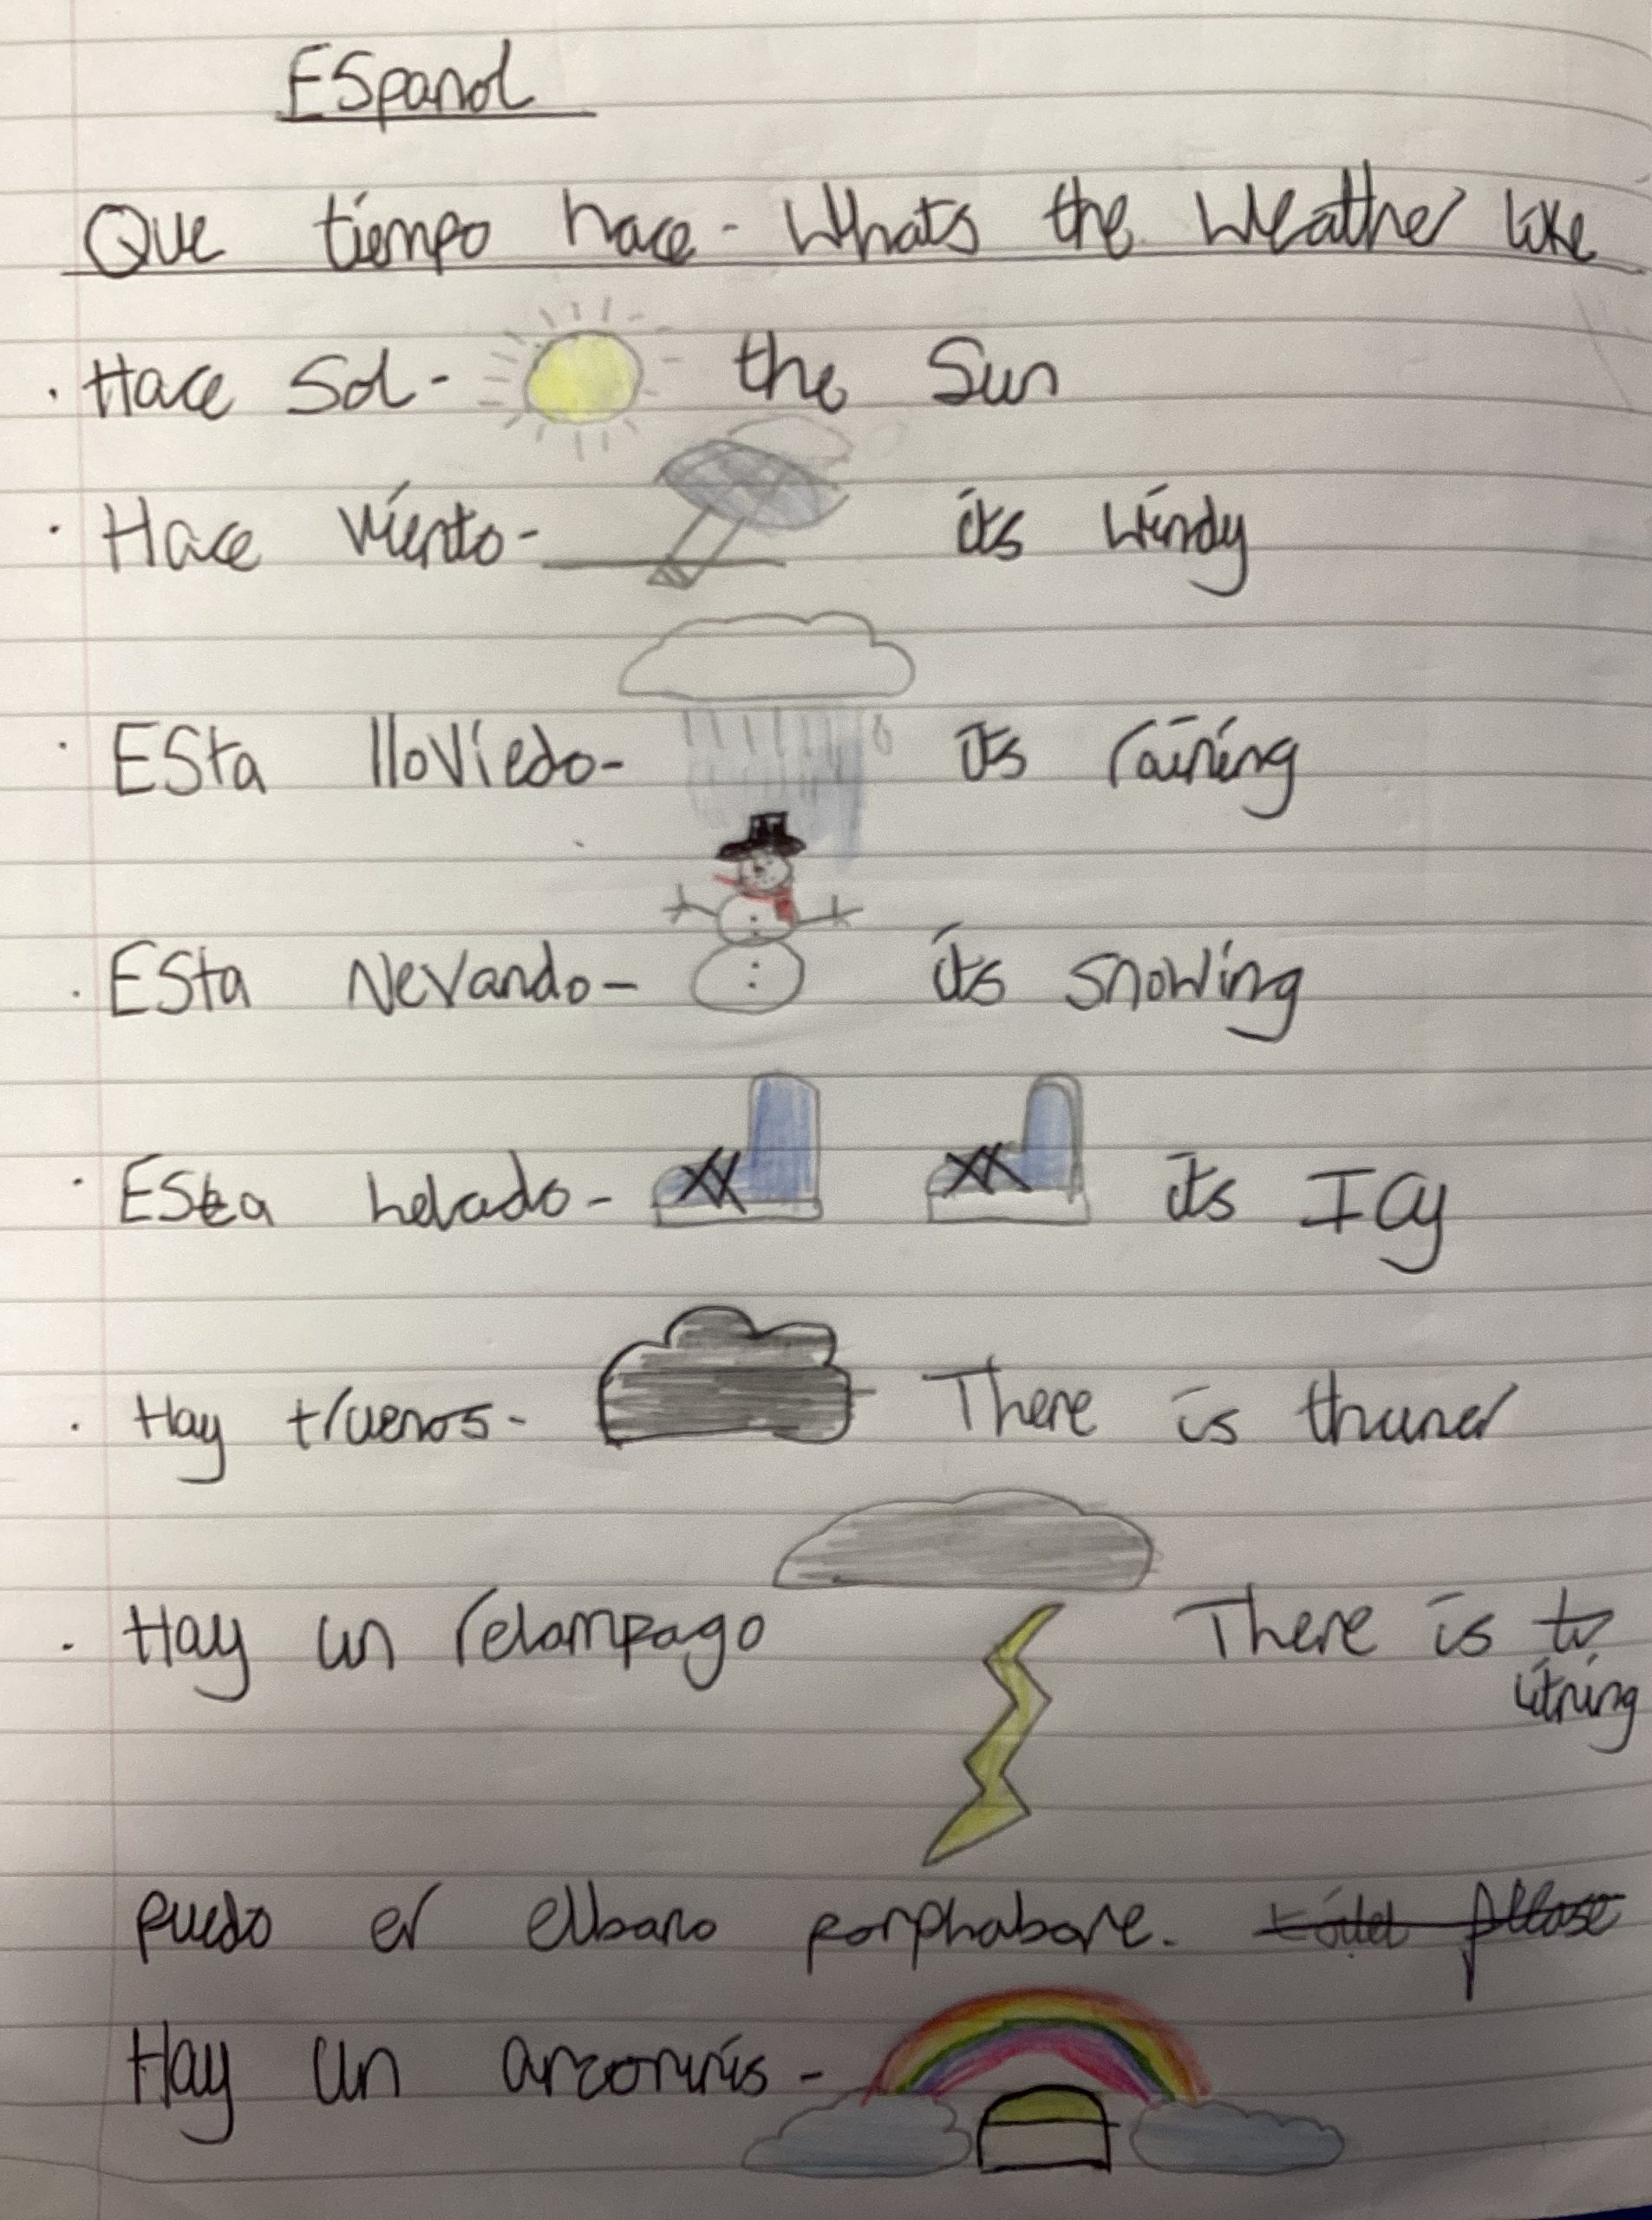 ESpanol
Que tiempo hace - Whats the Weather like
· Hace Sol - the Sun
· Hace Viento - its Windy
· ESta lloViedo - its raining
· ESta NeVando - its snowing
· ESta helado - its Icy
· Hay truenos - There is thuner
· Hay un relampago There is
litning
puedo er elbano porphabore. toilet please
Hay un arcoriris -